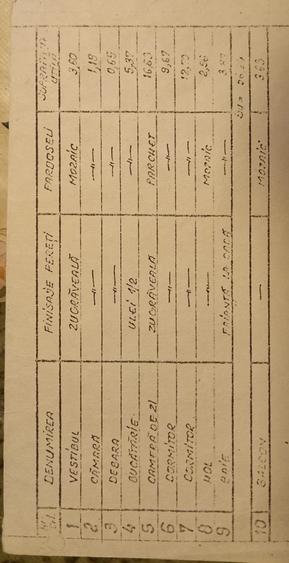 DENUMIREA FINISAJE PEREȚI PARDOSELI
1 VESTIBUL ZUGRĂVEALĂ MOZAIC 3,60
2 CĂMARĂ —"— —"— 1,19
3 DEBARA —"— —"— 0,65
4 BUCĂTĂRIE ULEI 1/2 —"— 5,37
5 CAMERĂ DE ZI ZUGRĂVEALĂ PARCHET 16,63
6 DORMITOR —"— —"— 9,67
7 DORMITOR —"— —"—
8 HOL —"— MOZAIC
9 BAIE FAIANȚĂ LA CADĂ —"—
10 BALCON — MOZAIC 3,63